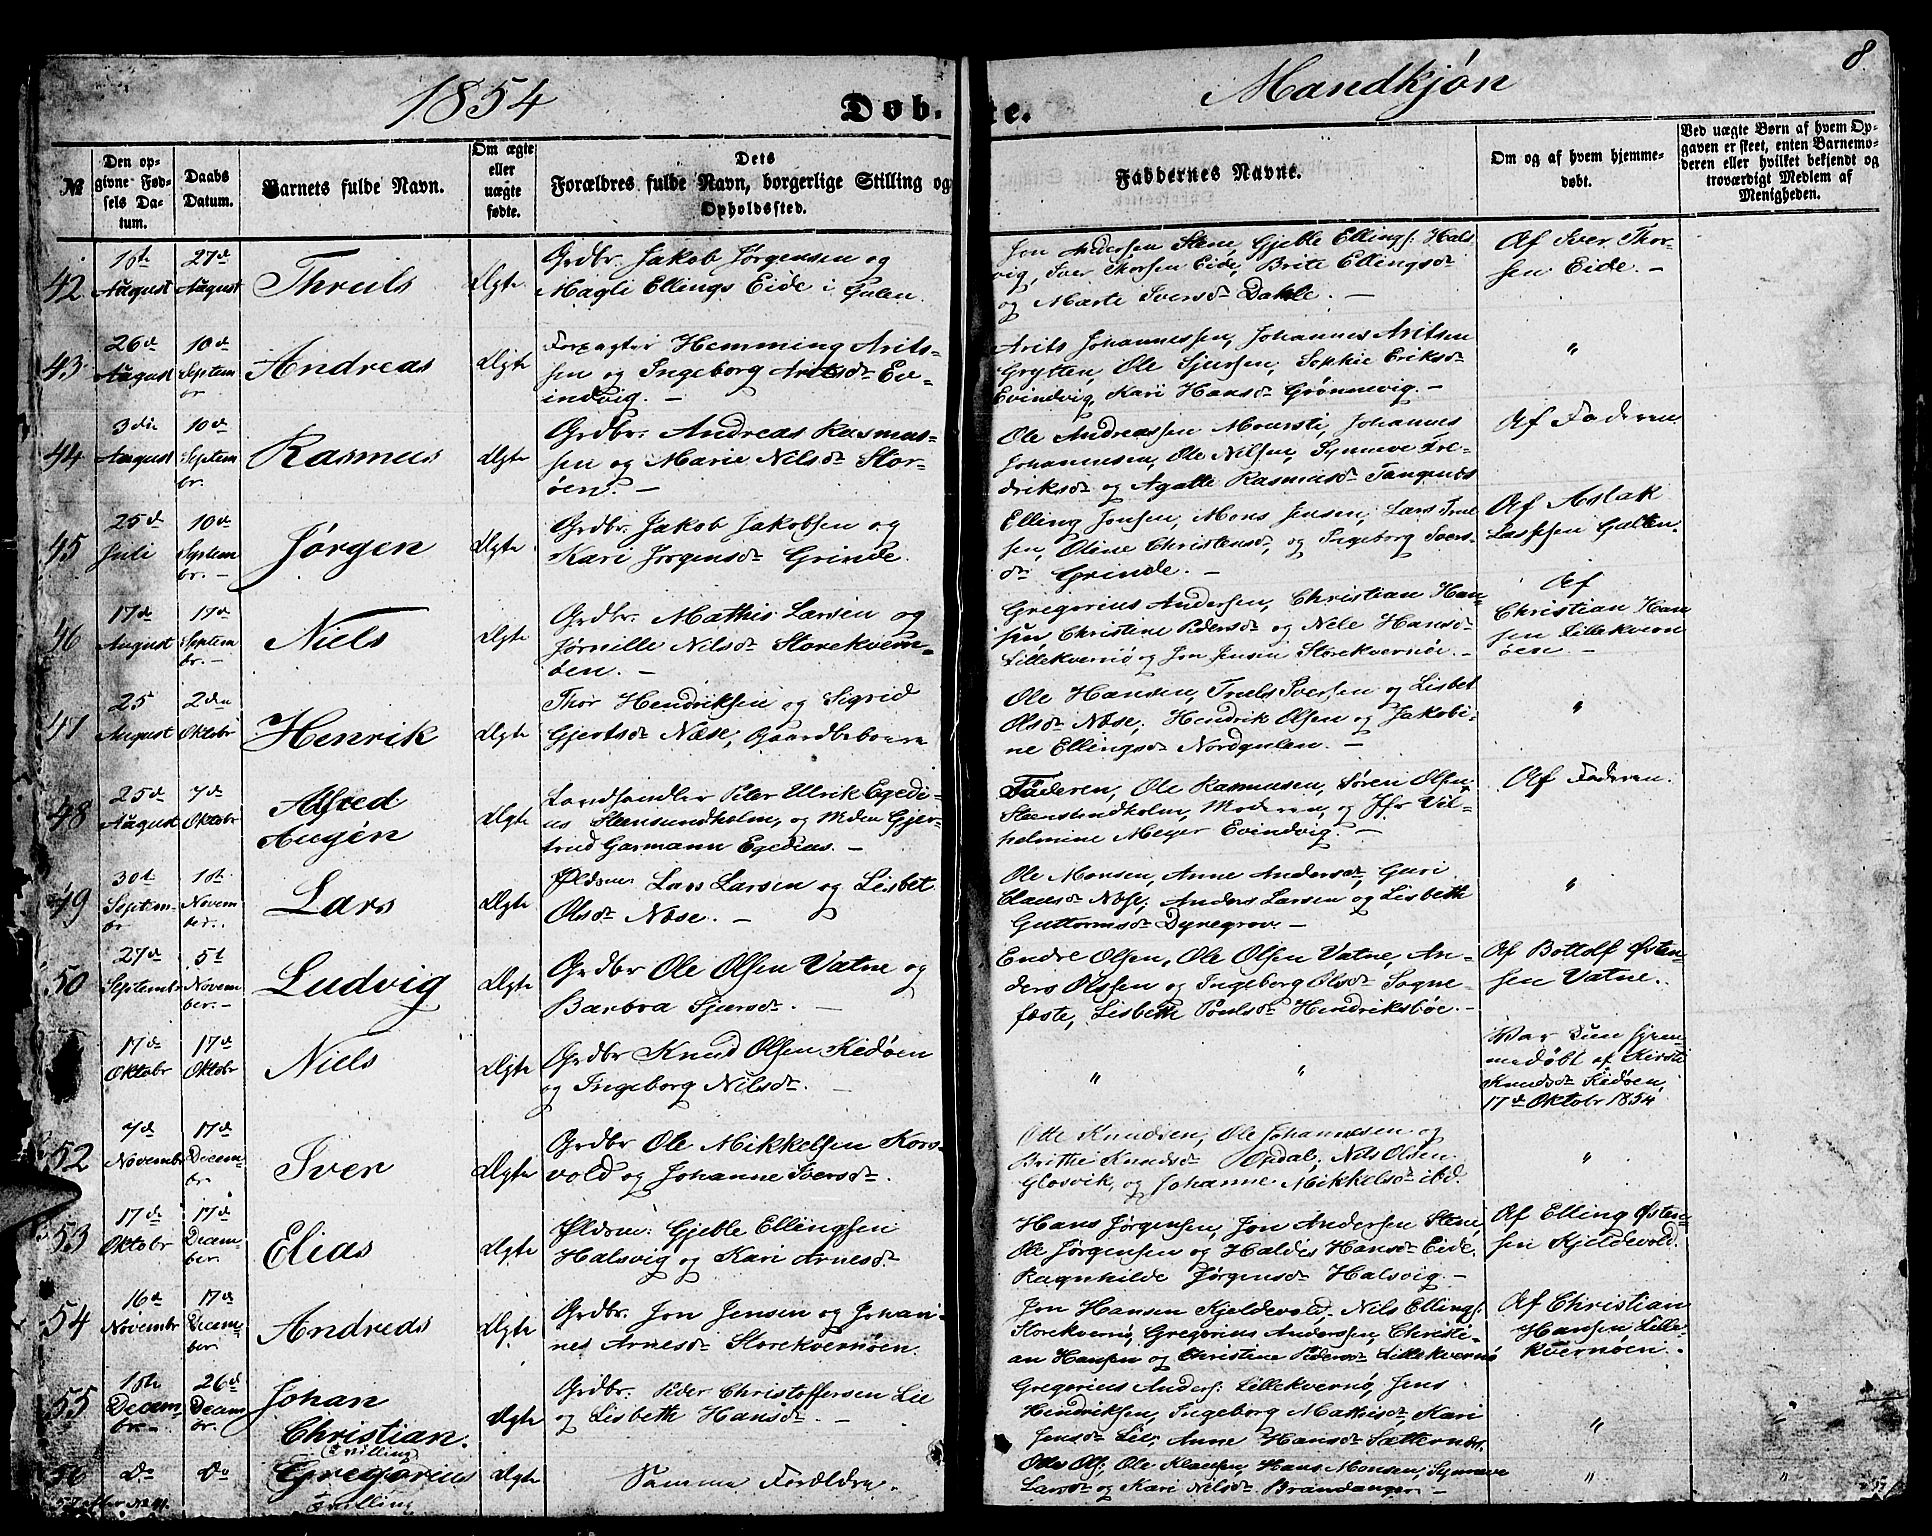 8.
1854
Døb. te.
Mandkjøn
№
Den op-
givne Fød-
sels Da-
tum.
Daabs
Datum.
Barnets fulde Navn.
Om ægte
eller
uægte
fødte.
Dets
Forældres fulde Navn, borgerlige Stilling og
Opholdssted.
Faddernes Navne.
Om og af hvem hjemme-
døbt.
Ved uægte Børn af hvem Op-
gaven er skeet, enten Barnemo-
deren eller hvilket bekjendt og
troværdigt Medlem af
Menigheden.
42
August
27de
August
Ægte
Grdbr. Jakob Jørgensen og
Magli Ellings Eide i Gulen.
Jon Andersen Stene, Gjeble Ellings: Hals
vig, Iver Thorsen Eide, Brite Ellingsdr
og Marte Iversdr Dahle. —
Af Iver Thor-
sen Eide. —
43
26de
August
10de
Septem
br
Andreas
Ægte
Forpagter Hemming Arits-
sen og Ingeborg Aritsdr Ev-
indvig. —
Arits Johannessen, Johannes Aritsen
Grytten, Ole Sjursen, Sophie Eriksdr
Evindvig, Kari Hansdr Grønnevig. —
"
44
3die
August
10de
Septem
br.
Rasmus
Ægte
Grdbr. Andreas Rasmus-
sen og Marie Nilsdr Stor-
øen. —
Ole Andreassen, Johannes
Johannesen, Ole Nilsen, Synneve Fre-
driksdr og Agatte Rasmusdr Tangenæs
Af Faderen
45
25de
Juli
10de
Septem
br. —
Jørgen
Ægte
Grdbr. Jakob Jakobsen og
Kari Jørgensdr Grinde.
Elling Jonsen, Mons Jensen, Lars
sen, Oline Christensdr, og Ingeborg Ivers-
dr Grinde. —
Af Aslak
Lassesen
46
17de
August
17de
Septem
br. —
Niels
Ægte
Grdbr. Mathis Larsen og
Nilsdr Storekvern-
øen. —
Gregorius Andersen, Christian Han-
sen Christine Pedersdr og Nele Hansdr
Lillekvernø og Jon Jensen Storekvernøe. —
Af
Christian Han
sen Lillekvern
øen. —
47
25
August
2den
Oktobr
Henrik
Ægte
Thor Hendriksen og Sigrid
Gjertsdr Næse, Gaardbeboere
Ole Hansen, Truls Iversen og Lisbet
Olsdr Næse, Hendrik Olsen og Jakobi-
ne Ellingsdr Nordgulen. —
"
48
25de
August
7de
Oktobr
Alfred
Augén
Ægte
Landhandler Peter Ulrik Egedi-
us Steensundholm, og Mden Gjer-
trud Garmann Egedius. —
Faderen, Ole Rasmusen, Søren Olsen
Steensundholm, Moderen, og Jfr Vil-
helmine Meyer Evindvig. —
Af Faderen.
49
30t
Septem-
br
1ste
Novem
ber.
Lars
Ægte
Pldsm. Lars Larsen og Lisbet
Olsdr Næse. —
Ole Monsen, Anne Andersdr, Guri
Claesdr Næse, Anders Larsen og Lisbeth
Guttormsdr Dynegrov —
"
50
27de
Septembr
5t
Novem
ber. —
Ludvig
Ægte
Grdbr Ole Olsen Vatne og
Barbra Sjursdr. —
Endre Olsen, Ole Olsen Vatne, An-
ders Olssen og Ingeborg Olsdr Sogne-
fæste, Lisbeth Poulsdr Hendriksbøe. —
Af Bottolf Østen-
sen Vatne.
17de
Oktobr
17de
Oktobr
Niels
Ægte
Grdbr Knud Olsen Kidøen
og Ingeborg Nilsdr.
" "
Var kun hjem
medøbt af Kirsti
Knudsdr Kidøen,
17de Oktobr 1854
52
7de
Novembr
17de
Decem-
br.
Iver
Ægte
Grdbr Ole Mikkelsen Kors-
vold og Johanne Iversdr.
Otte Knudsen, Ole Johannesen og
Brithe Knudsdr Opdal, Nils Olsen
Glosvik, og Johanne Mikkelsdr ibd.
"
53
17de
Oktobr
17de
Decem-
ber.
Elias
Ægte
Pldsm. Gjeble Ellingsen
Halsvig og Kari Arnesdr
Hans Jørgensen, Jon Andersen Stene,
Ole Jørgensen og Haldis Hansdr Eide.
Ragnhilde Jørgensdr Halsvig. —
Af Elling Østen-
sen Kjeldevold.
54
16de
Novembr
17de
Decem-
ber.
Andreas
Ægte
Grdbr. Jon Jensen og Johan-
nes Arnesdr Storekvernøen.
Jon Hansen Kjeldevold, Nils Ellings:
Storekvernø, Gregorius Andersen, Christi-
an Hansen og Christine Pedersdr Lillekvernø
Af Christian
Hansen Lille-
kvernøen. —
55
1ste
Decem-
br. —
26de
Decem
br.
Johan
Christian.
(tvilling)
Ægte
Grdbr. Peder Christoffersen Lie
og Lisbeth Hansdr. —
Gregorius Anders: Lillekvernø, Jens
Hendriksen, Ingeborg Mathisdr, Kari
Jensdr Lie, Anne Hansdr Sætternæs.
"
56
Do
Do
Gregorius
tvilling
Ægte
Samme Forældre.
Otte Ols: Ole Klausen, Hans Monsen, Synneve
Larsdr og Kari Nilsdr Brandanger. —
"
"
57 efter No 41.